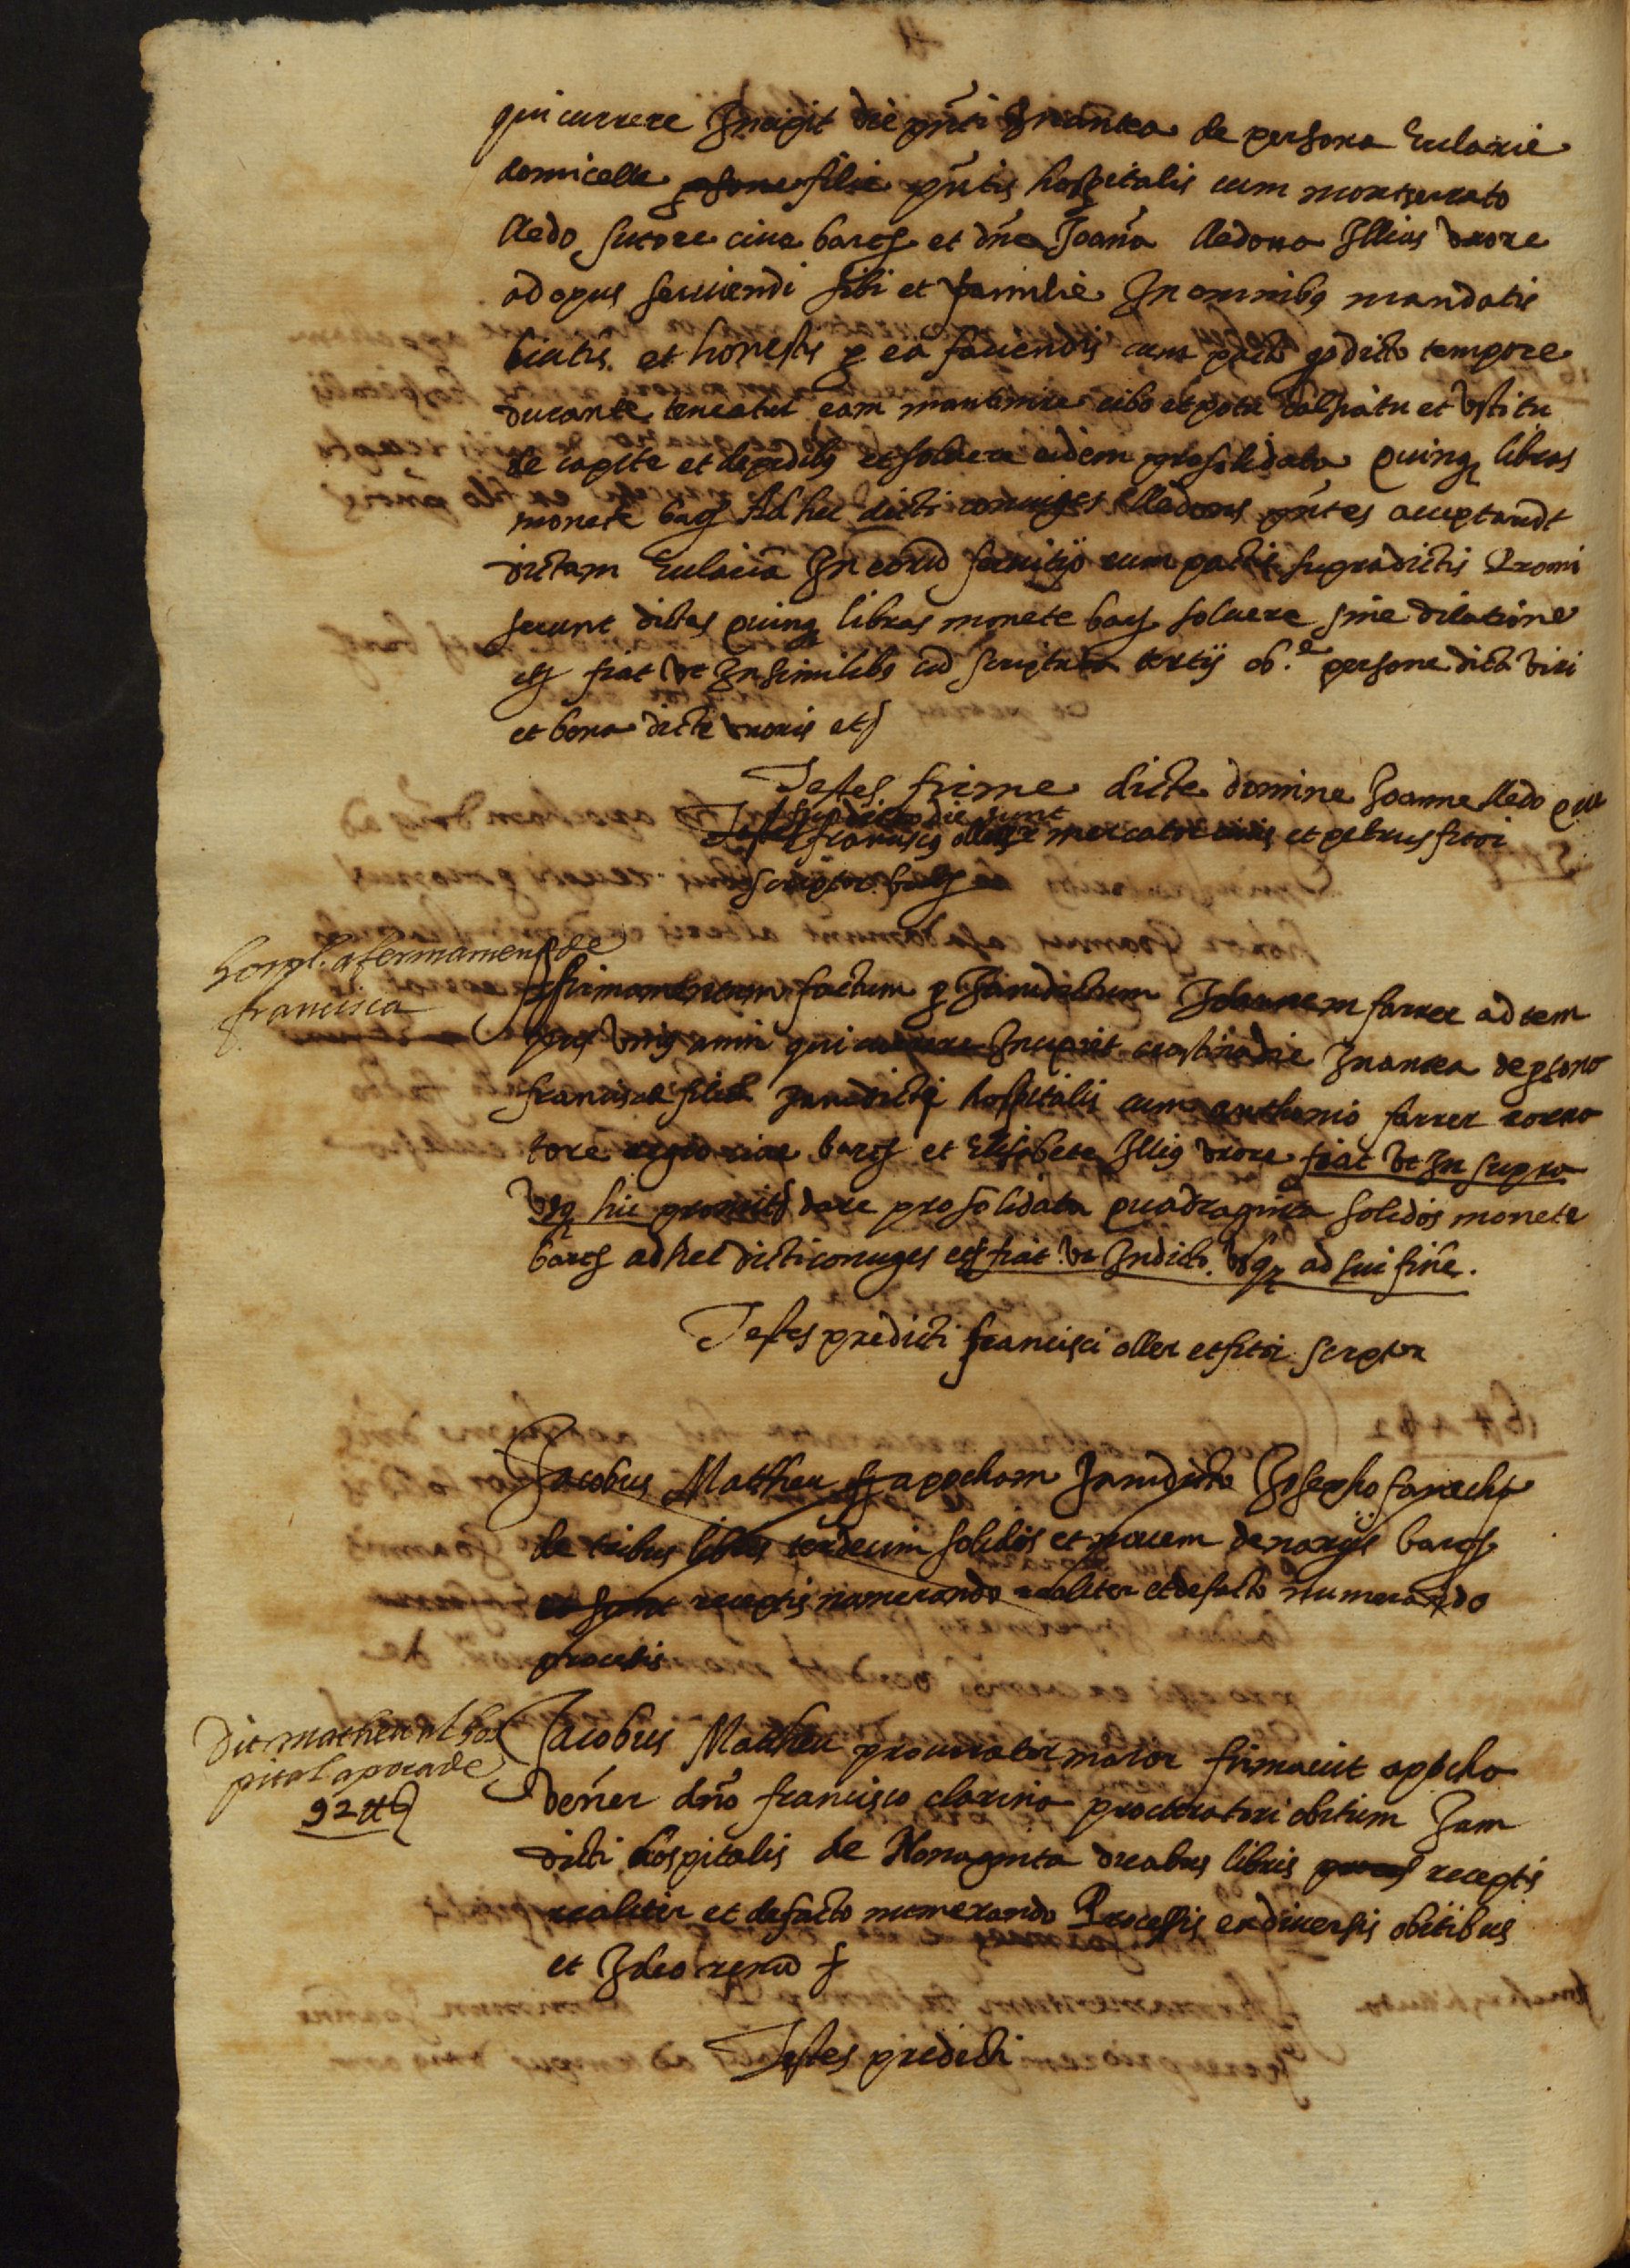 qui currere Incipit die pnti Inantea de persona Eularie
domicelle persone filie pntis hospitalis cum montserrato
lledo sutore cive barcs et dna Joana lledona Illius uxore
ad opus serviendi sibi et familie In omnibus mandatis
licitis et honestis p ea faciendis cum pacto q dicto tempore
durante teneatur eam mantinire cibo et potu calsiatu et vestitu
de capite et de pedibus et solvere eidem pro solidata quinq libras
monete barcs Ad hec dicti coniuges lledons pntes acceptandt
dictam Eularia In eoru servitio cum pactis supradictis Promi
serunt dictas quinq libras monete barcs solvere sine dilatione
etc fiat ut In similibus cu scriptura tertij ob.e persone dicto viri
et bona dicte uxoris etc
Testes firme dicte domine Joanne lledo que
dicto die sunt
Testes franciscus oller mercator civis et petrus fitor
scriptor barcs
hospl. afermament de
francisca
Affirmamentum factum p Jamdictum Joannem farrer ad tem
pus unius anni qui currere Incipiet crastina die Inantea de psona
francisce filie Jamdicti hospitalis cum anthonio farrer torna
tore cive barcs et Elisabete Illius uxore fiat ut In supra
usq hic promitt dare pro solidata quadraginta solidos monete
barcs ad hec dicti coniuges etc fiat ut In dicto usq ad sui fine.
Testes predicti francisci oller et fitor scriptor
Jacobus Matheu apocham Jamdicto Josepho
de tribus libris terdecim solidis et novem denarijs barcs
et sunt receptis numerando realiter et de facto numerando
procesis
Dit matheu al hos
pital apoca de
92 ll
Jacobus Matheu procurator maior firmavit apocha
vener dno francisco clarina procuratori obitum Jam
dicti hospitalis de Nonaginta duabus libris proces receptis
realiter et de facto numerando Processis ex diversis obitibus
et Ideo renu
Testes predicti